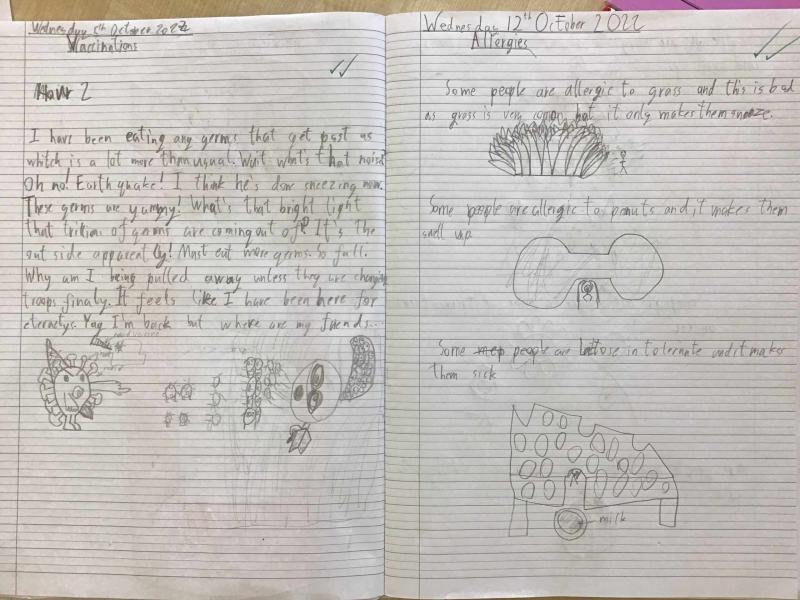 Wednesday 5th October 2022
Vaccinations
Hour 2
I have been eating any germs that get past us
whitch is a lot more than usual. Wait what's that noise?
Oh no! Earthquake! I think he's done sneezing now.
These germs are yummy! What's that bright light
that trillion of germs are coming out of? It's the
out side apparently! Must eat more germs. So full.
Why am I being pulled away unless they are changing
troops finaly. It feels like I have been here for
eternetys. Yay I'm back but where are my friends...
Wednesday 12th October 2022
Allergies
Some people are allergic to grass and this is bad
as grass is very comon but it only makes them sneeze.
Some people are allergic to penuts and it makes them
swell up
Some people are lactose in tolerante and it makes
them sick
milk